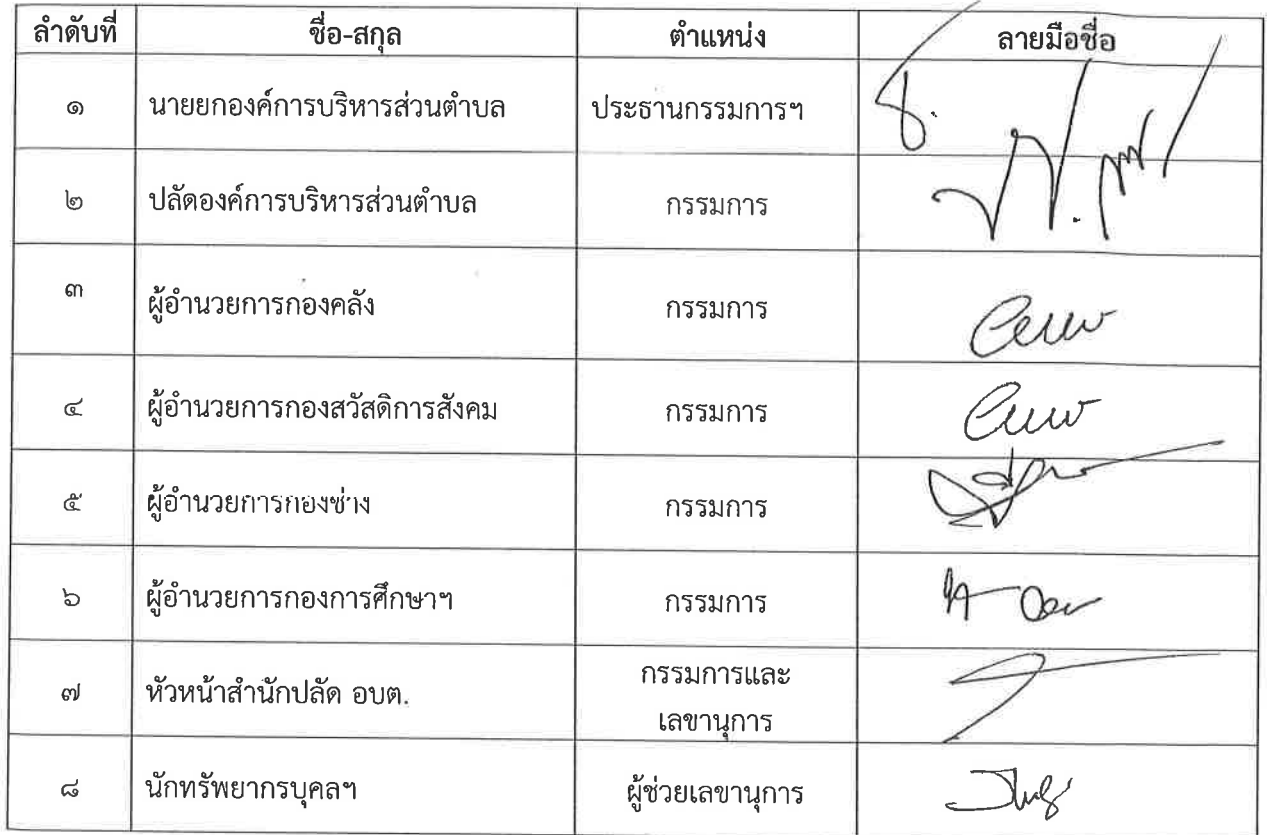 ลำดับที่ ชื่อ-สกุล ตำแหน่ง ลายมือชื่อ
๑ นายยกองค์การบริหารส่วนตำบล ประธานกรรมการฯ
๒ ปลัดองค์การบริหารส่วนตำบล กรรมการ
๓ ผู้อำนวยการกองคลัง กรรมการ
๔ ผู้อำนวยการกองสวัสดิการสังคม กรรมการ
๕ ผู้อำนวยการกองช่าง กรรมการ
๖ ผู้อำนวยการกองการศึกษาฯ กรรมการ
๗ หัวหน้าสำนักปลัด อบต. กรรมการและ
เลขานุการ
๘ นักทรัพยากรบุคลฯ ผู้ช่วยเลขานุการ